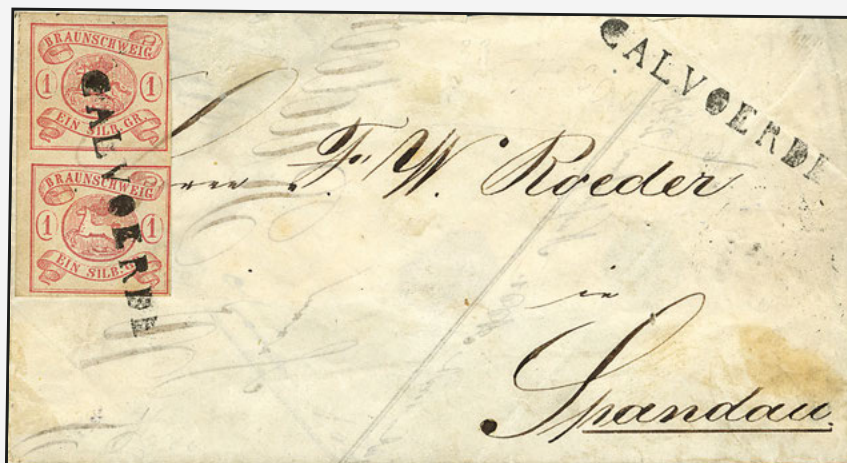 BRAUNSCHWEIG
1 1
EIN SILB. GR.
BRAUNSCHWEIG
1 1
EIN SILB. GR.
CALVOERDE
CALVOERDE
F. W. Roeder
in
Spandau.